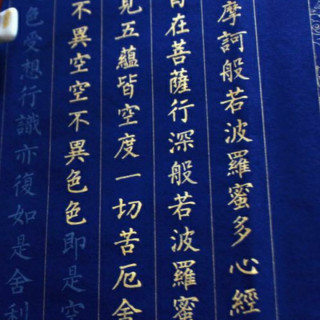 摩訶般若波羅蜜多心經
自在菩薩行深般若波羅蜜
見五蘊皆空度一切苦厄舍
不異空空不異色色即是空
色受想行識亦復如是舍利